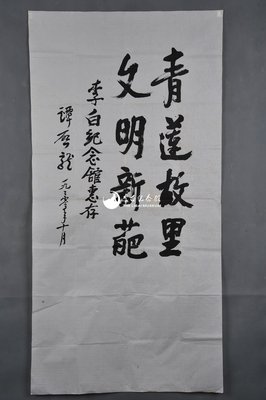 青莲故里
文明新葩
李白纪念馆惠存
谭启龙